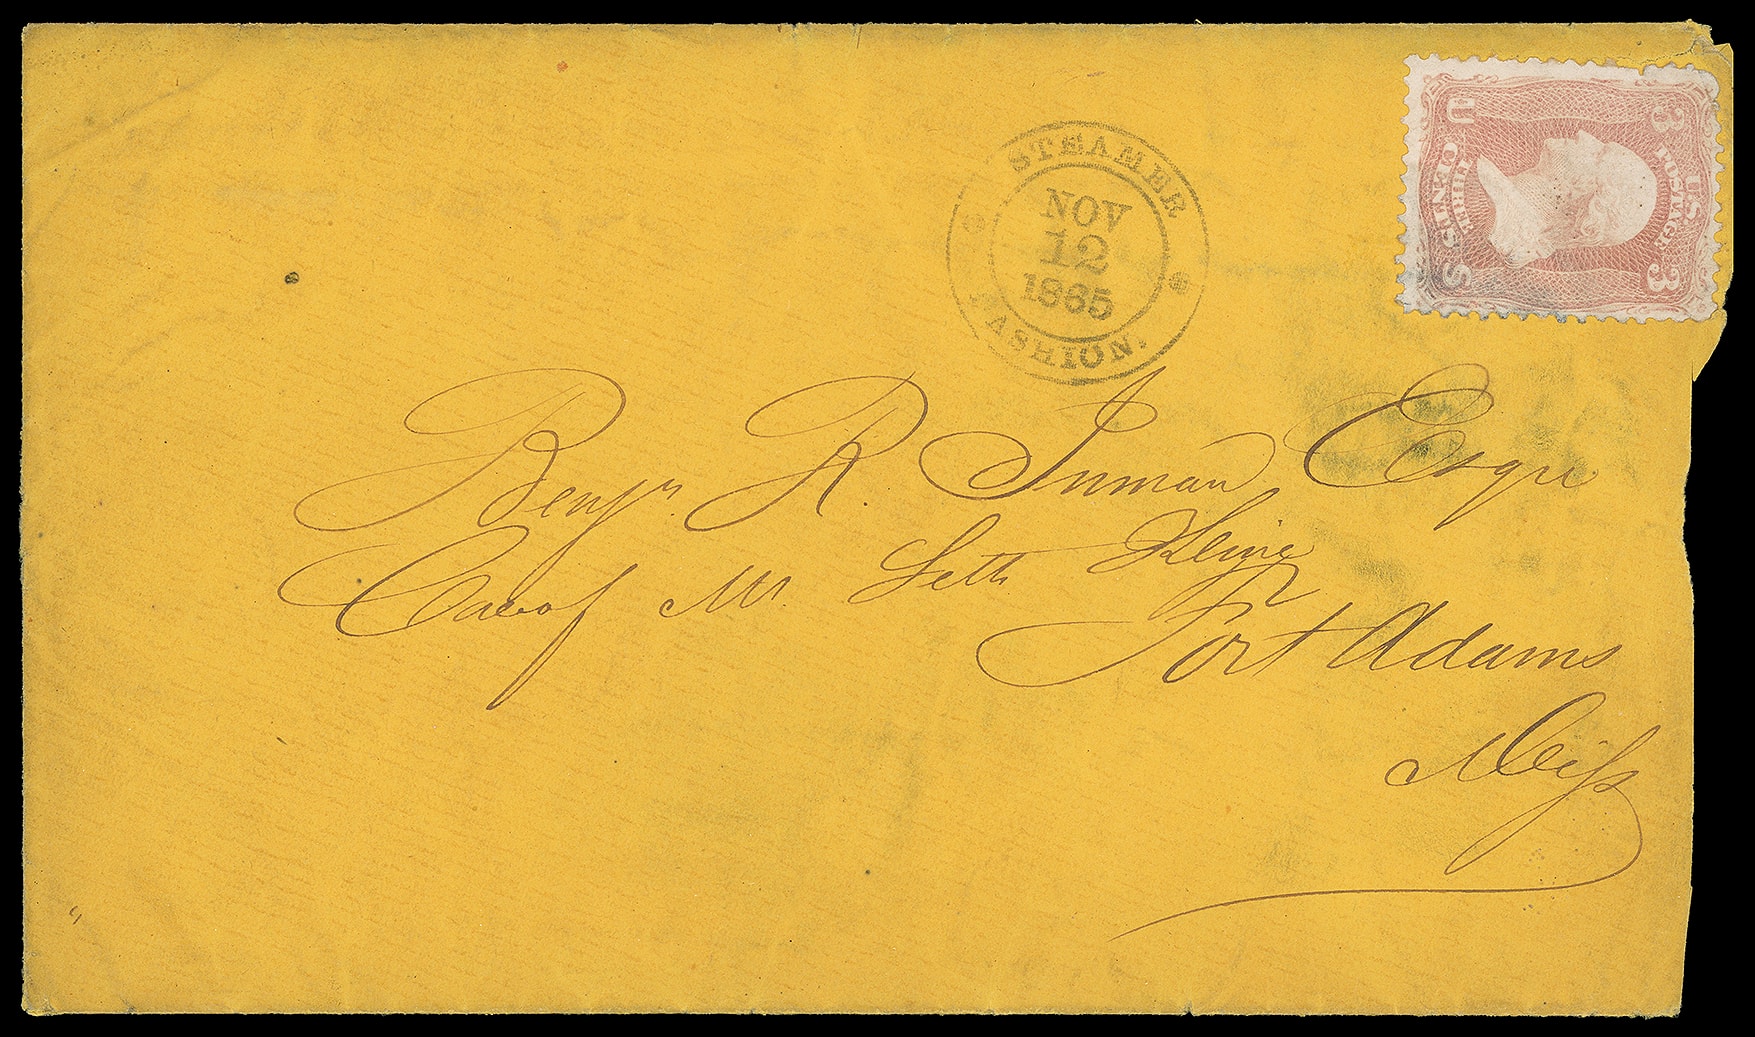 STEAMER
NOV
12
1865
ASHION.
U S
THREE
CENTS
U.S.
POSTAGE
3 3
Benjn. R. Inman Esqre
Care of Mr. Seth
Fort Adams
Miss